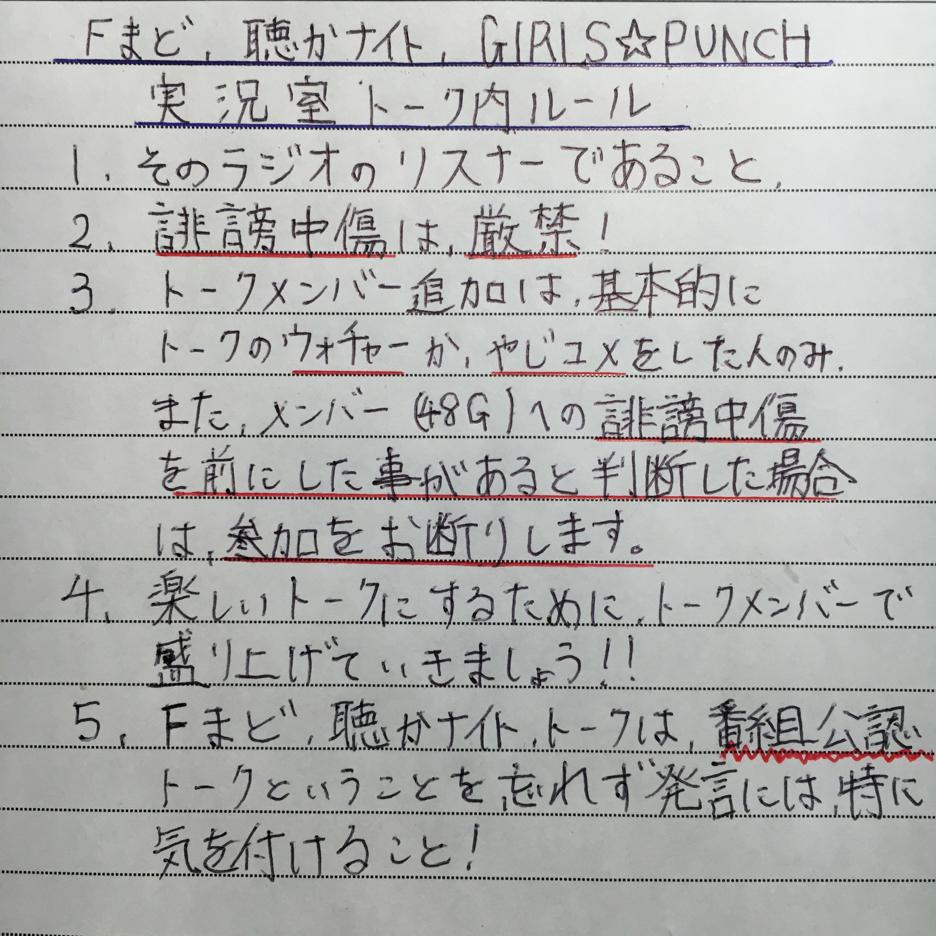 Fまど, 聴かナイト, GIRLS☆PUNCH
実況室トーク内ルール
1. そのラジオのリスナーであること,
2. 誹謗中傷は, 厳禁!
3. トークメンバー追加は, 基本的に
トークのウォチャーか, やじコメをした人のみ.
また, メンバー(48G)への誹謗中傷
を前にした事があると判断した場合
は, 参加をお断りします。
4. 楽しいトークにするために, トークメンバーで
盛り上げていきましょう!!
5. Fまど, 聴かナイト, トークは, 番組公認
トークということを, 忘れず発言には, 特に
気を付けること!